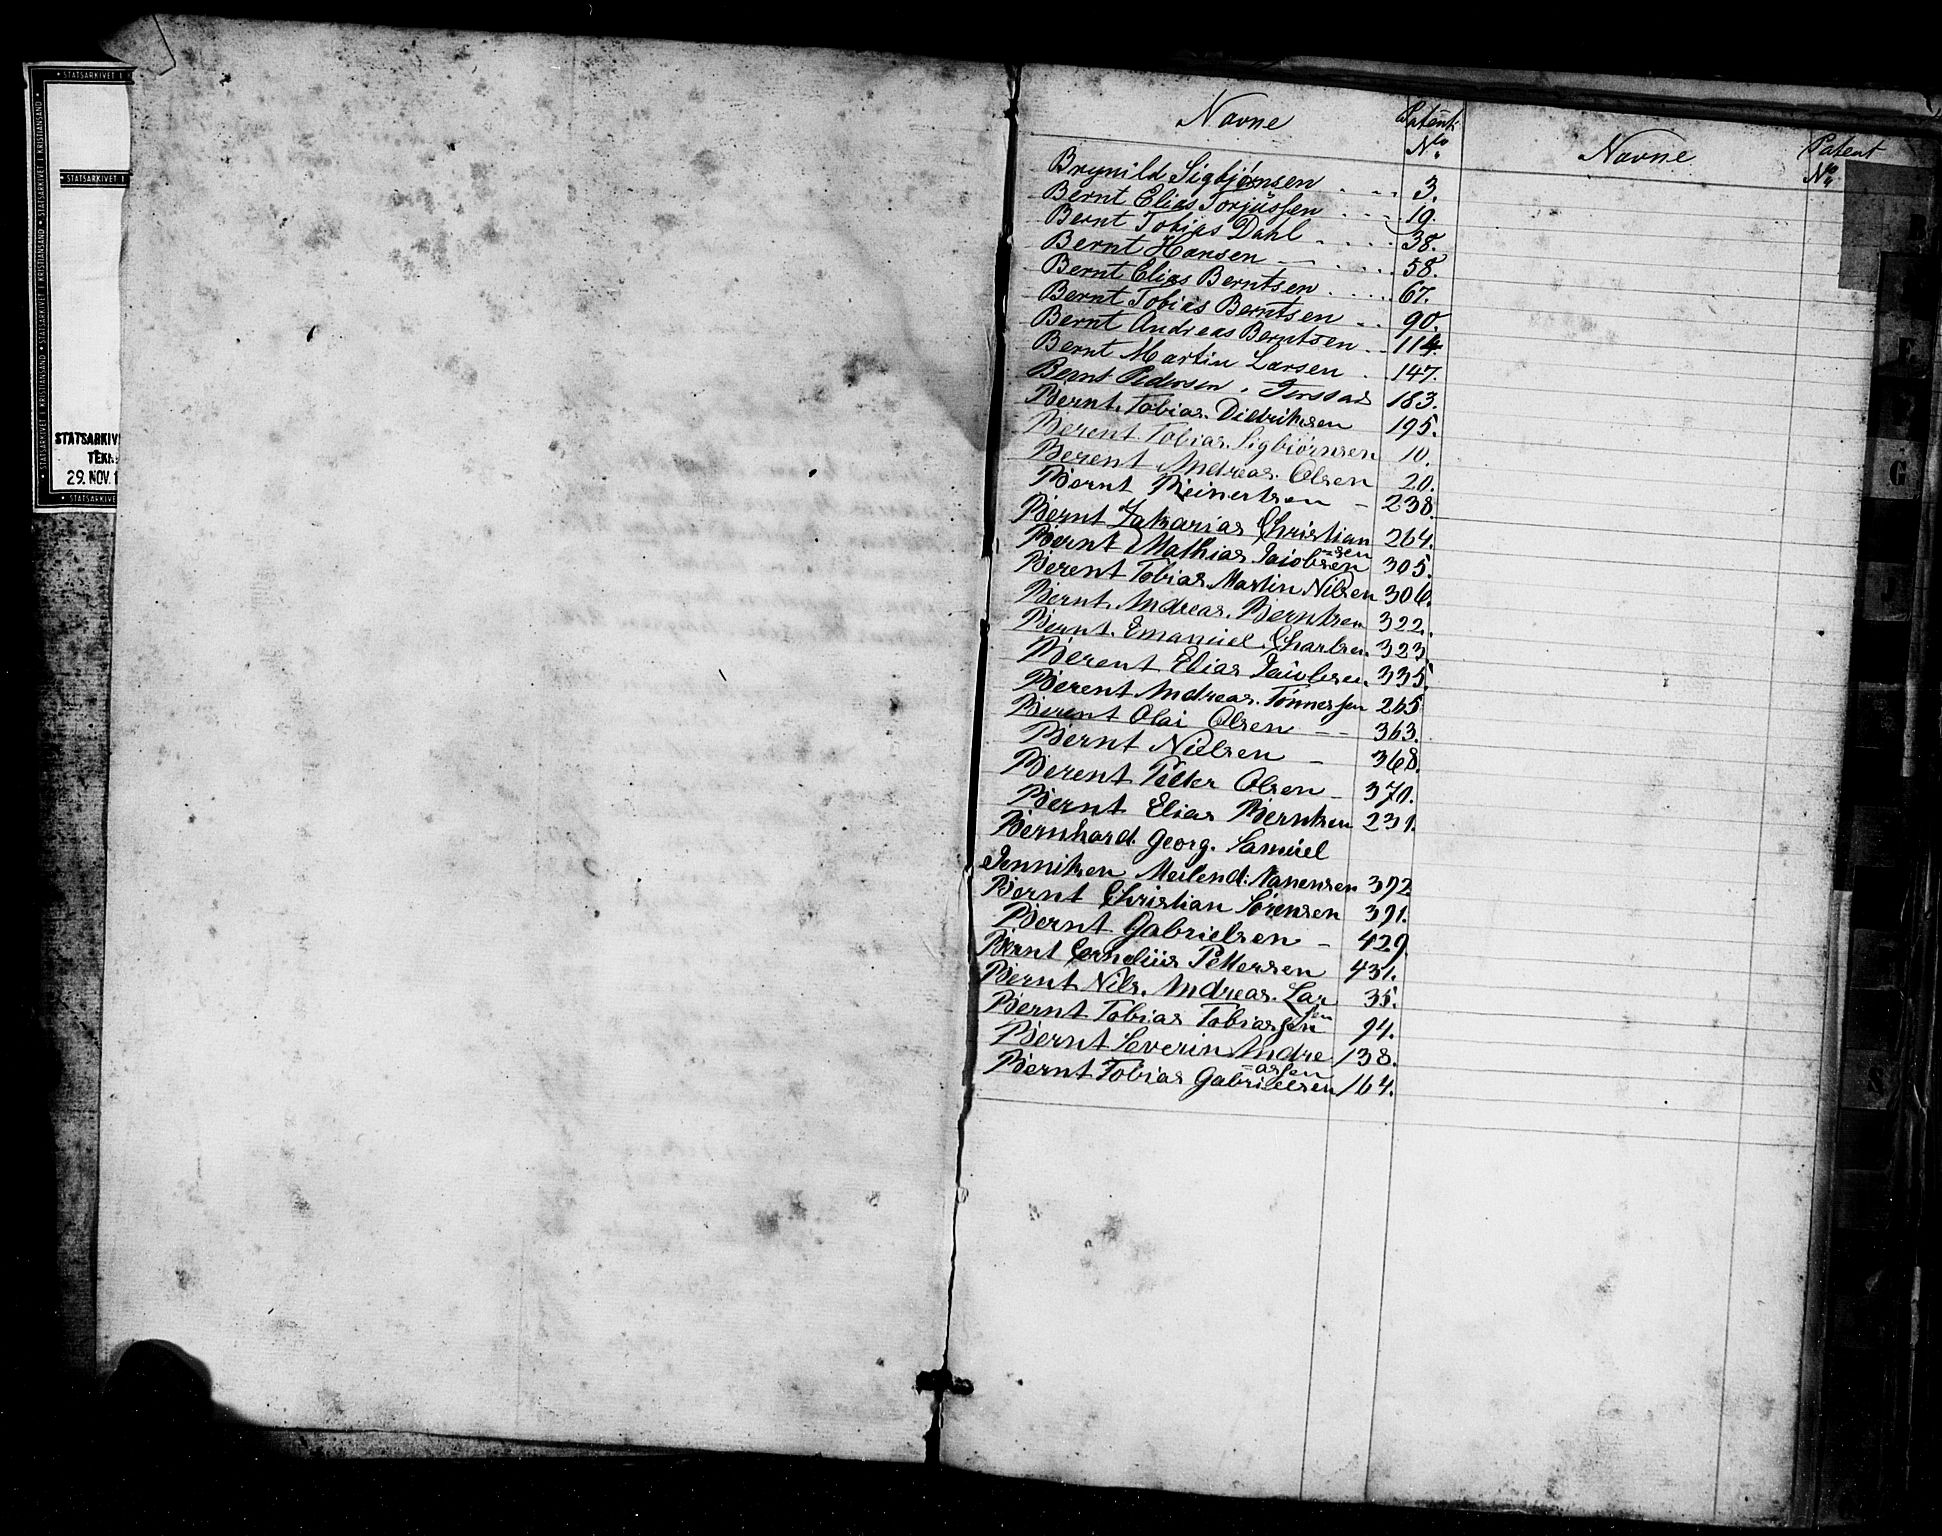 STATSARKIVET I
STATSARKIVET I KRISTIANSAND
STATSARKIVET I
29. NOV. 1
STATSARKIVET I
Navne Patent No Navne Patent No
Brynild Sigbjørnsen 3.
Bernt Elias Torjussen 19.
Bernt Tobias Dahl 38.
Bernt Hansen 58.
Bernt Elias Berntsen 67.
Bernt Tobias Berntsen 90.
Bernt Andreas Berntsen 114.
Bernt Martin Larsen 147.
Bernt Pedersen 183.
Bernt. Tobias. Diedriksen 195.
Berent. Tobias. Sigbiørnsen 10.
Berent Andreas. Olsen 20.
Bernt Reinertsen 238.
Bernt Zakarias Christian 264.
=sen
Bernt Mathias Jacobsen 305.
Berent Tobias Martin Nilsen 306.
Bernt. Andreas. Berntsen 322.
Bernt. Emanuel. Charlsen 323
Berent Elias Jacobsen 335.
Berent Andreas. Tønnessen 265
Berent Olai Olsen 363.
Bernt Nielsen 368.
Berent Petter Olsen 370.
Bernt Elias Berntsen 231.
Bernhard. Georg. Samuel
Nanensen 392
Bernt Christian Sørensen 391.
Bernt Gabrielsen 429.
Bernt Cornelius Pettersen 431.
Bernt Nils. Andreas. Lar 35.
sen
Bernt Tobias Tobiassen 94.
Bernt Severin Andre 138.
=assen
Bernt Tobias Gabrielsen 164.
G
J
S